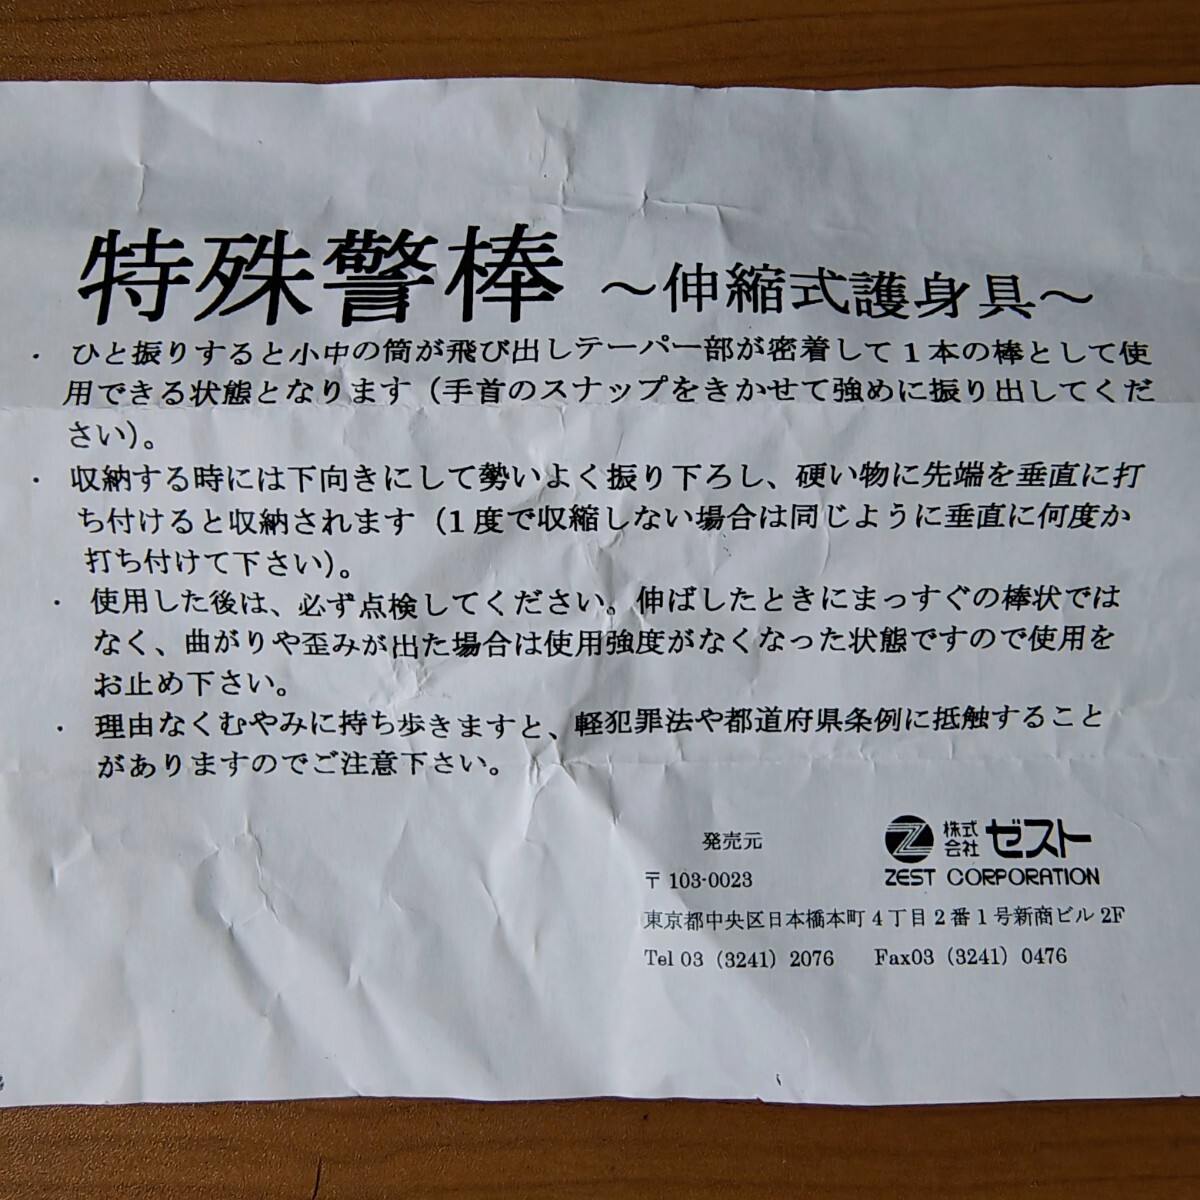 特殊警棒 ～伸縮式護身具～
・ ひと振りすると小中の筒が飛び出しテーパー部が密着して１本の棒として使
用できる状態となります（手首のスナップをきかせて強めに振り出してくだ
さい）。
・ 収納する時には下向きにして勢いよく振り下ろし、硬い物に先端を垂直に打
ち付けると収納されます（１度で収縮しない場合は同じように垂直に何度か
打ち付けて下さい）。
・ 使用した後は、必ず点検してください。伸ばしたときにまっすぐの棒状では
なく、曲がりや歪みが出た場合は使用強度がなくなった状態ですので使用を
お止め下さい。
・ 理由なくむやみに持ち歩きますと、軽犯罪法や都道府県条例に抵触すること
がありますのでご注意下さい。
発売元 株式会社 ゼスト
ZEST CORPORATION
〒103-0023
東京都中央区日本橋本町４丁目２番１号新商ビル 2F
Tel 03（3241）2076 Fax03（3241）0476